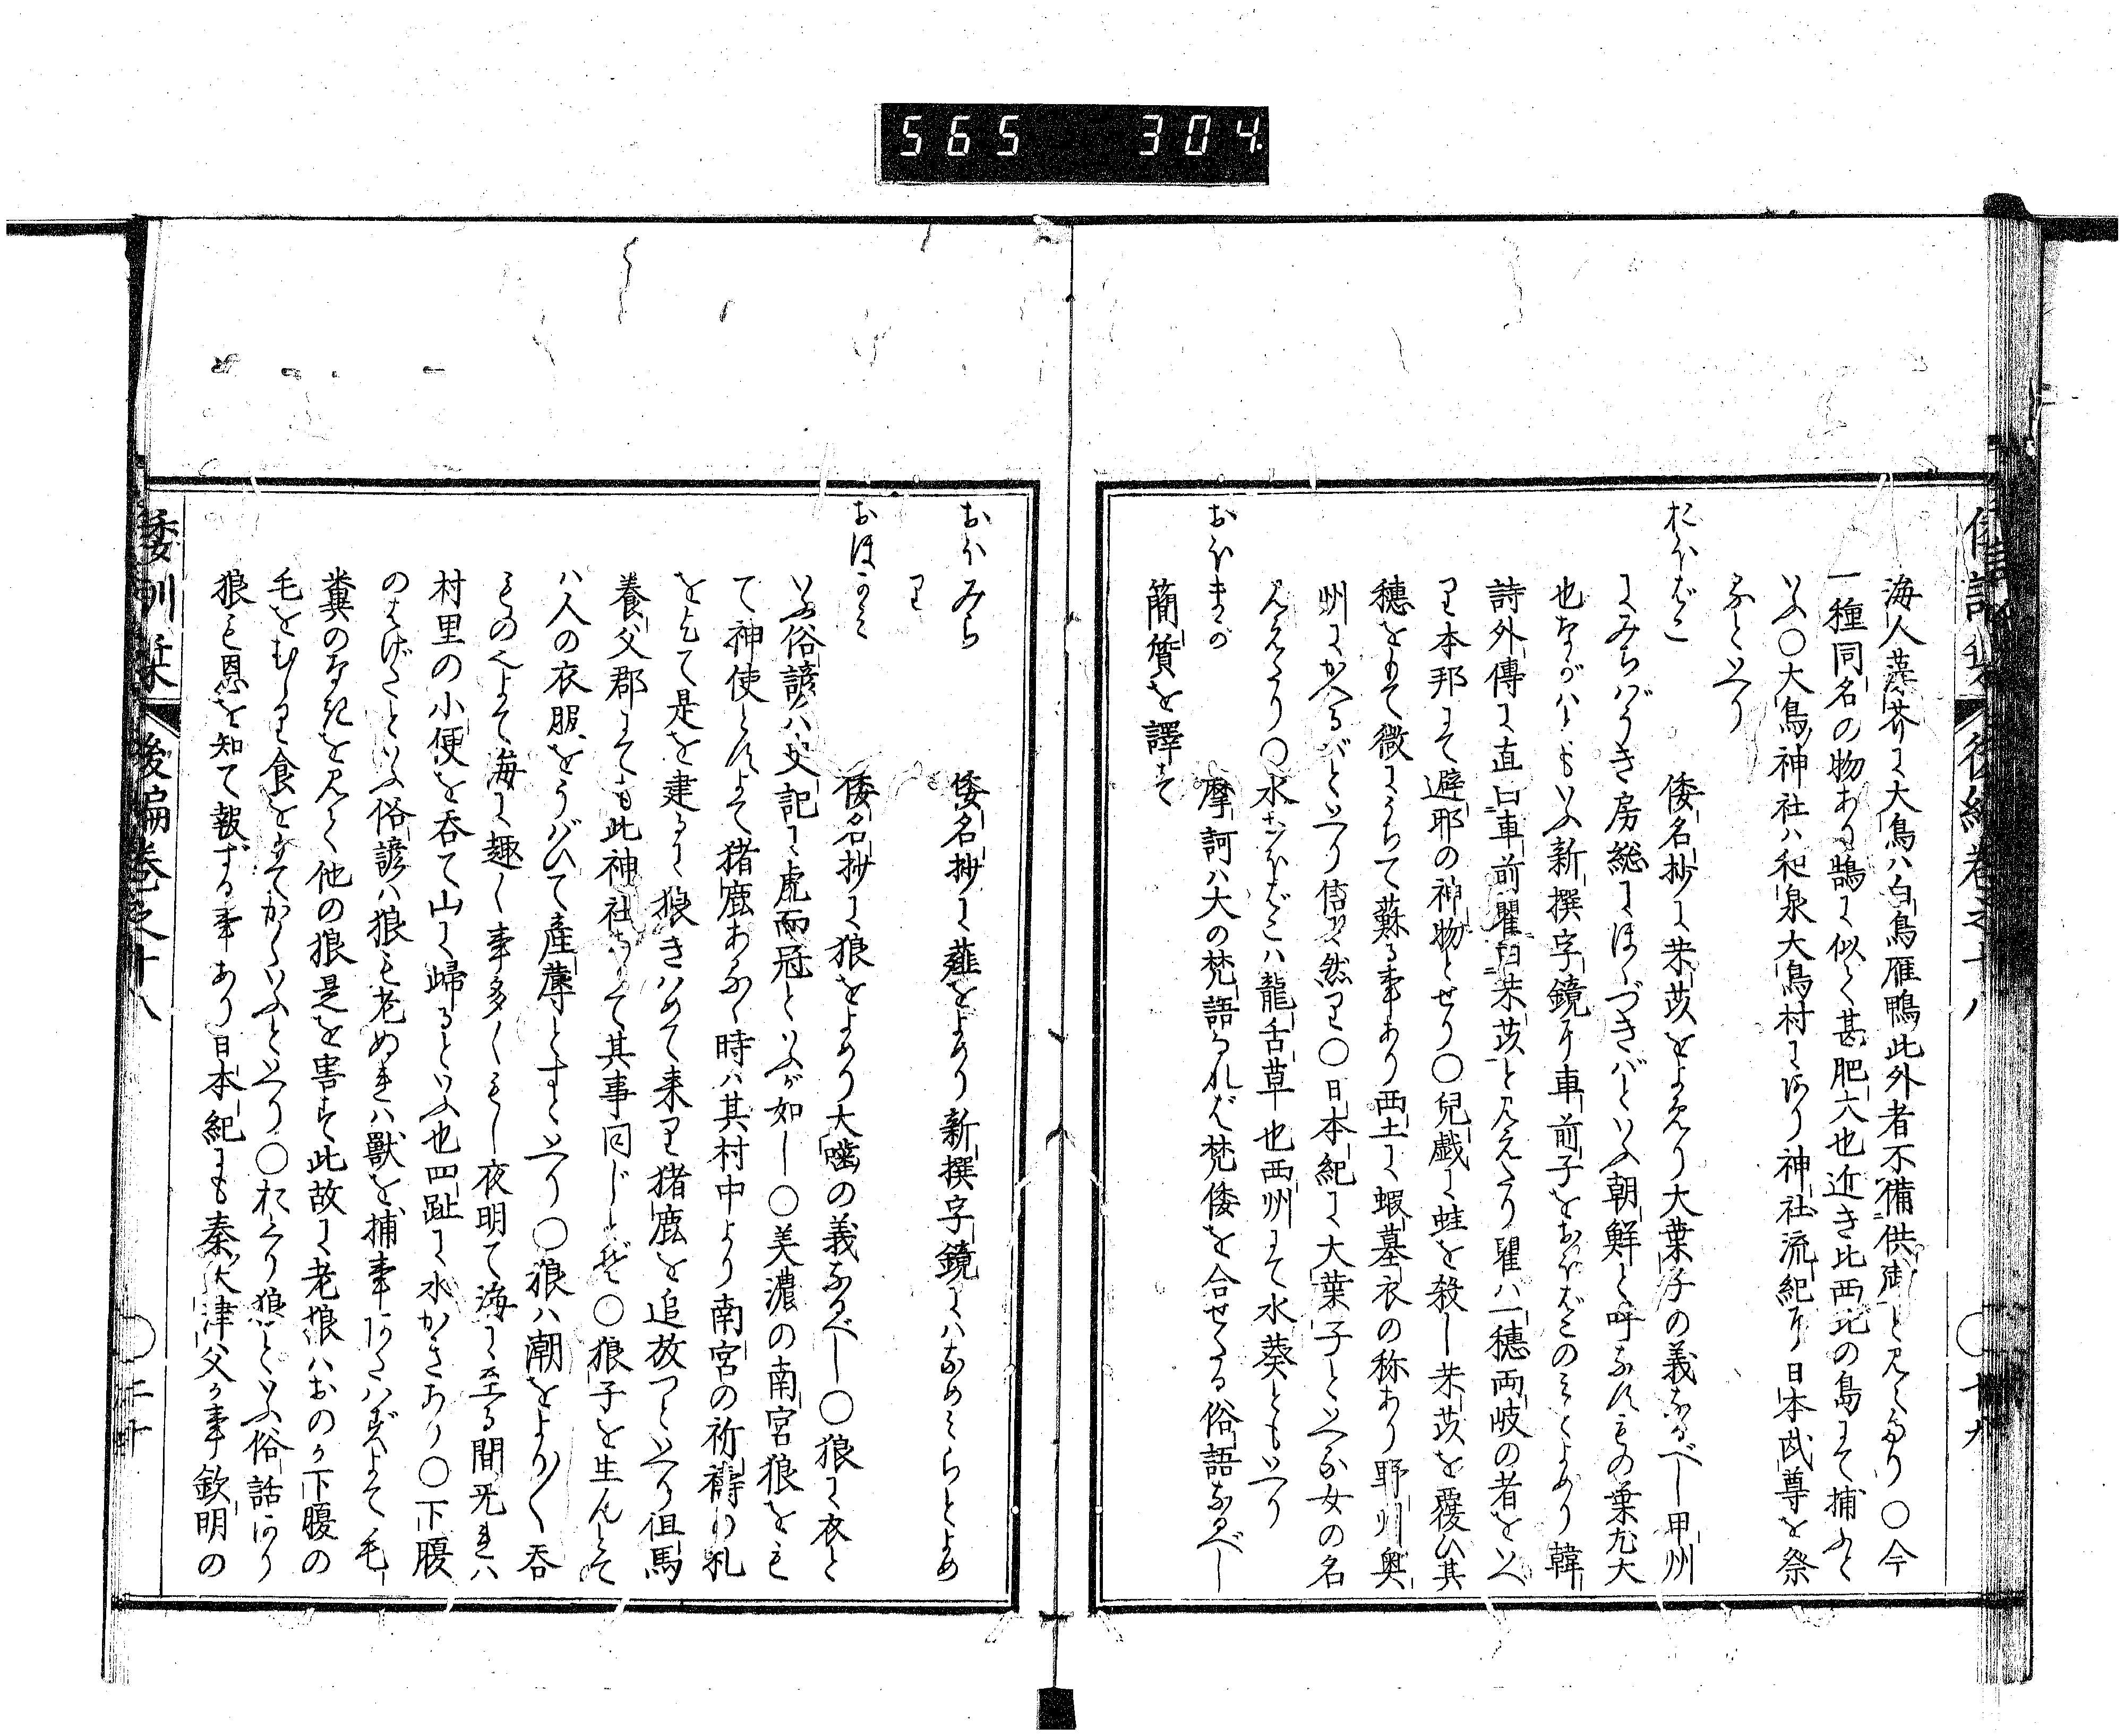 565 304.
倭訓栞 後編巻之十八 ○十九
海人藻芥に大鳥ハ白鳥雁鴨此外者不備供御と見えたり○今
一種同名の物あり鵠に似て甚肥大也近き比西北の島にて捕ふと
いふ○大鳥神社ハ和泉大鳥村にあり神社流紀に日本武尊を祭
るといへり
おほばこ 倭名抄に芣苡をよめり大葉子の義なるべし甲州
にみちばうき房総にほゝづきバといふ朝鮮と呼なすもの葉尤大
也おがハらもいふ新撰字鏡に車前子をおほばこのミとよめり韓
詩外傳に直曰車前瞿曰芣苡と見えたり瞿ハ一穗両岐の者をいへ
り本邦にて避邪の神物とせり○兒戯に蛙を殺し芣苡を覆ひ其
穗をもて微にうちて蘇る事あり西土に蝦蟇衣の称あり野州奥
州にかへるばといへり信州然り○日本紀に大葉子といへる女の名
見えたり○水おほばこハ龍舌草也西州にて水葵ともいへり
おほまか 摩訶ハ大の梵語なれば梵倭を合せたる俗語なるべし
簡質を譯せり
おほみら 倭名抄に薤をよめり新撰字鏡にハなめミらとよめ
り
おほかミ 倭名抄に狼をよめり大嚙の義なるべし○狼に衣と
いふ俗諺ハ史記に虎而冠といふが如し○美濃の南宮狼をも
て神使とすよて猪鹿あるゝ時ハ其村中より南宮の祈禱の札
を乞て是を建るに狼きハめて来り猪鹿を追放つといへり但馬
養父郡にても此神社ありて其事同じとぞ○狼子を生んとて
ハ人の衣服をうばひて産蓐とすといへり○狼ハ潮をより〳〵呑
ものゝよて海に趣く事多くもし夜明て海に至る間兀れハ
村里の小便を呑て山に歸るといふ也四趾に水かきあり○下腹
のはげたといふ俗諺ハ狼も老ぬれハ獸を捕事あたハずよて毛
糞のなきを見て他の狼是を害す此故に老狼ハおのが下腹の
毛をむしり食を立てかくいふといへり○おくり狼といふ俗話あり
狼も恩を知て報ずる事あり日本紀にも秦大津父か事欽明の
倭訓栞 後編巻之十八 ○二十